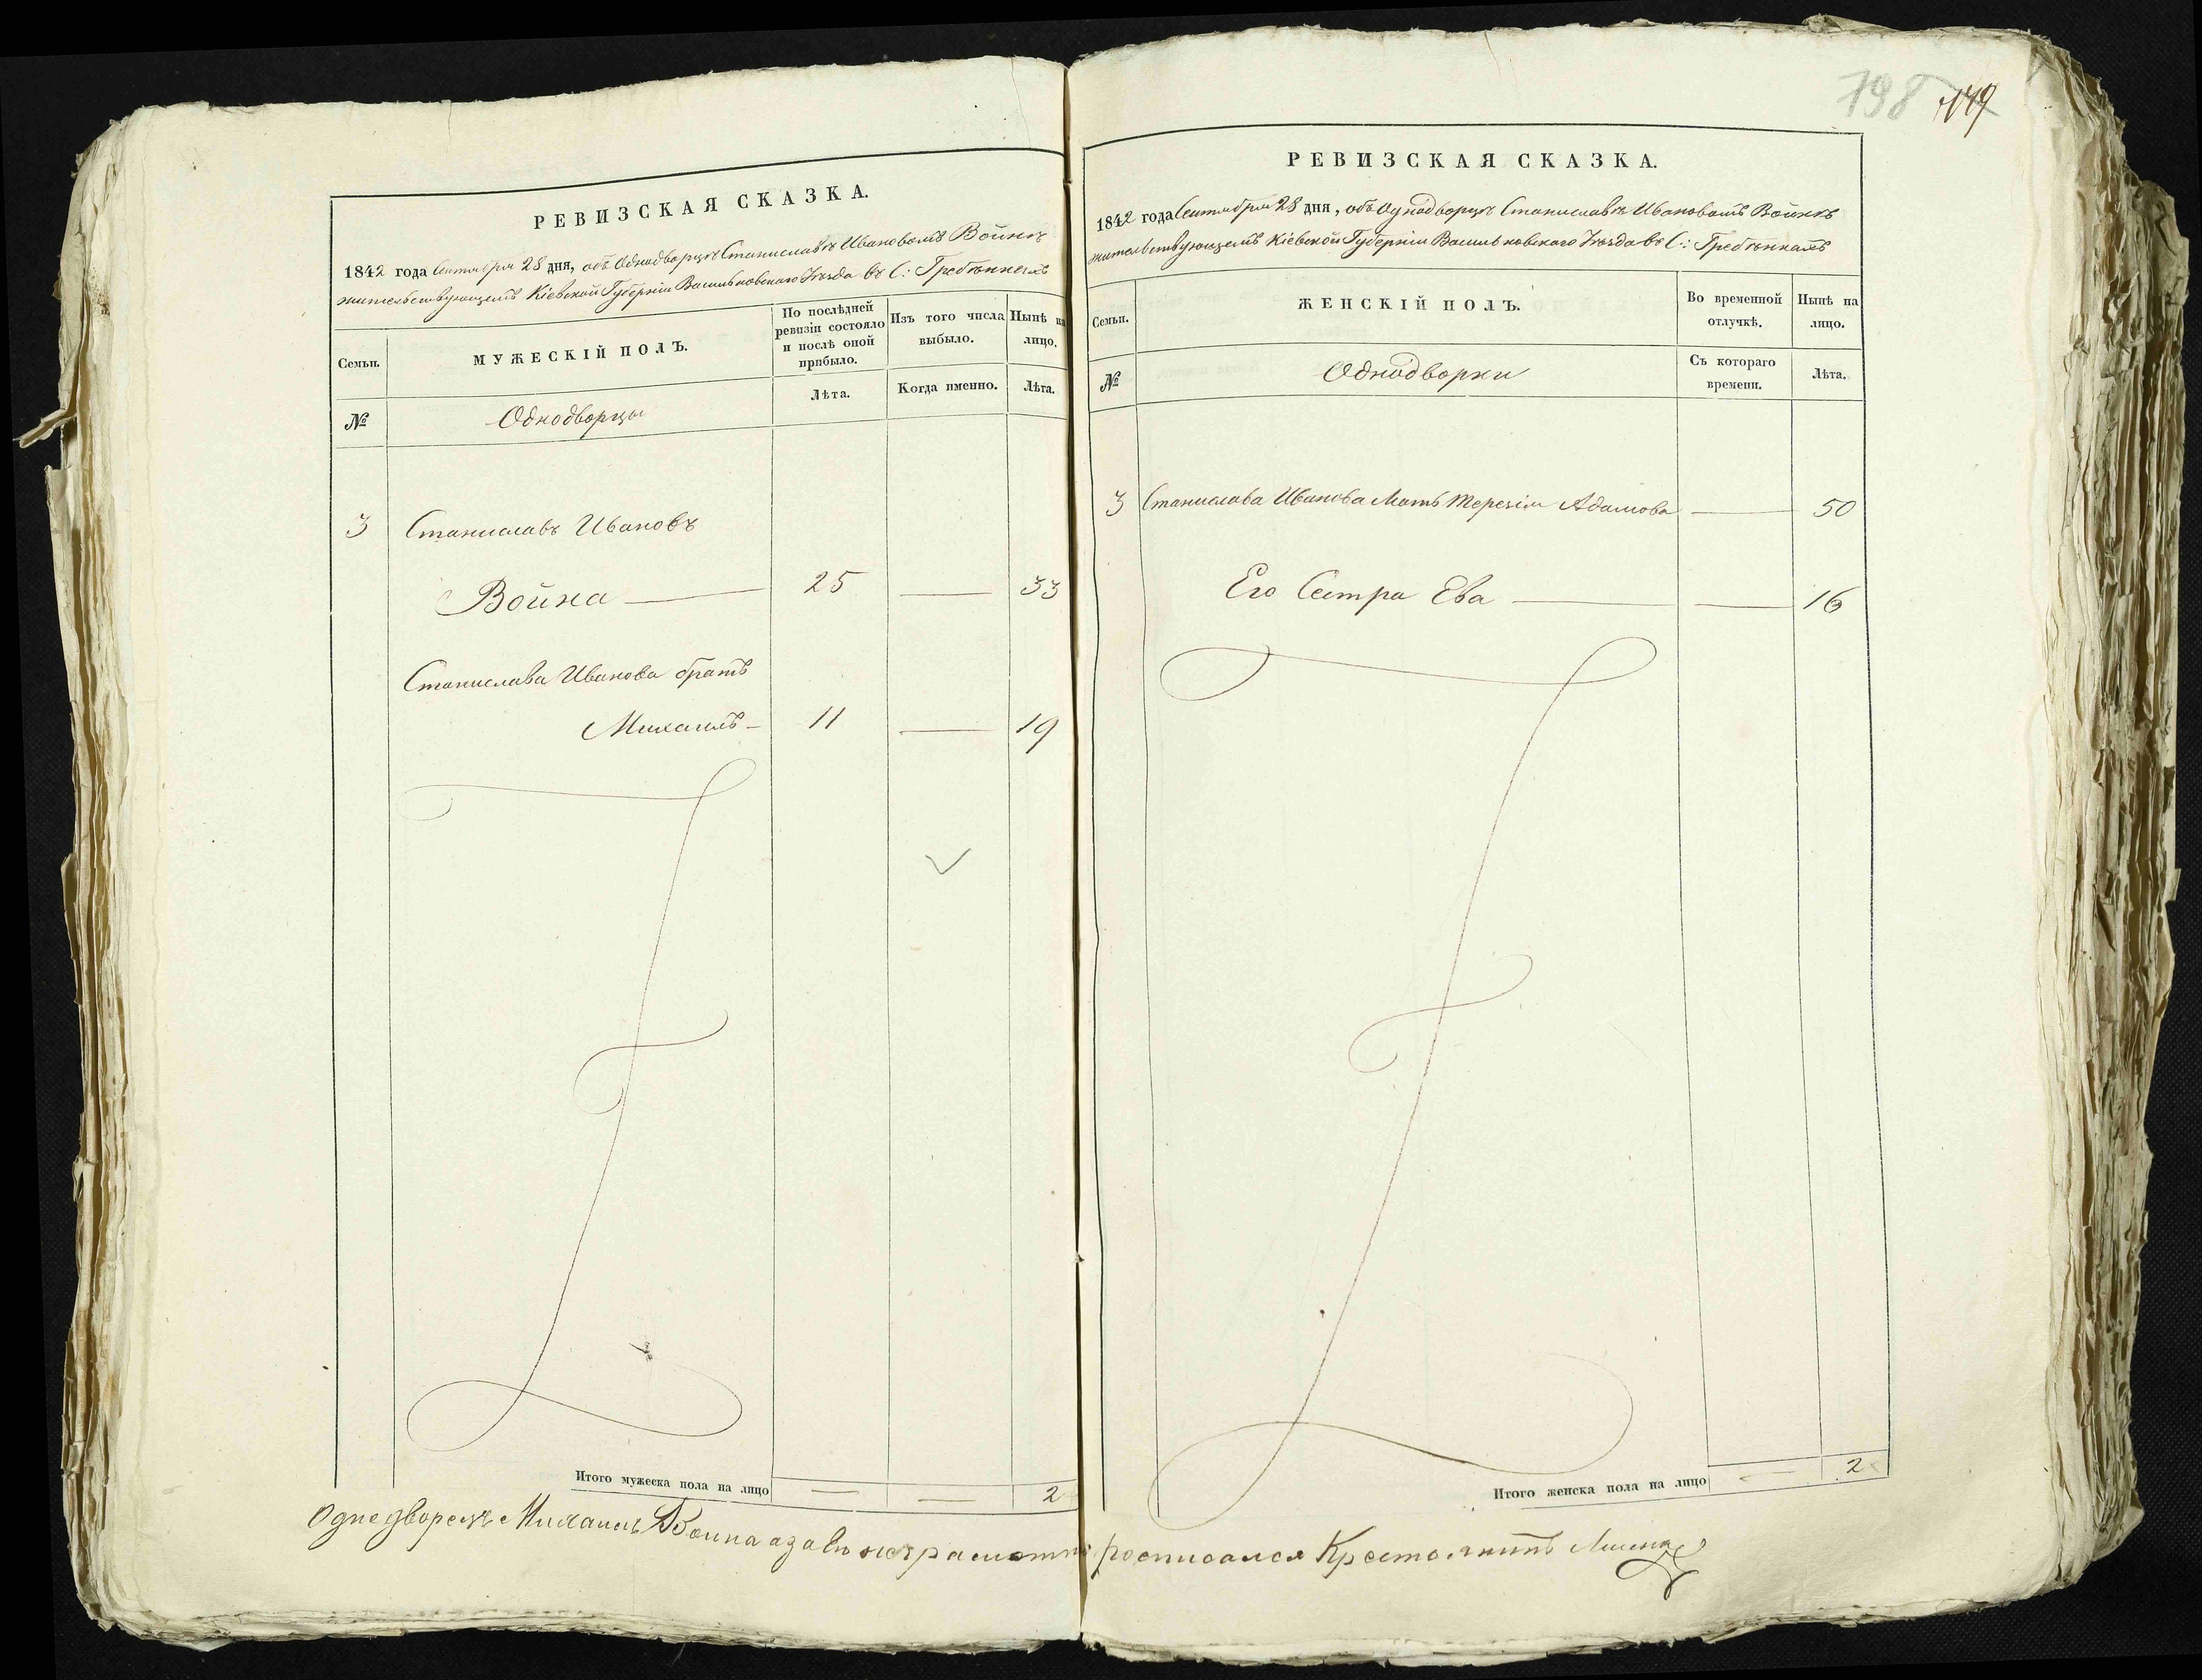 798 749
РЕВИЗСКАЯ СКАЗКА.
1842 года Сентября 28 дня, объ Однодворцѣ Станиславѣ Ивановомъ Войнѣ
жительствующемъ Кіевской Губерніи Васильковскаго Уѣзда въ С: Гребѣнкахъ
Семьи.
МУЖЕСКІЙ ПОЛЪ.
По послѣдней ревизіи состояло и послѣ оной прибыло.
Изъ того числа выбыло.
Нынѣ на лицо.
№
Однодворцы
Лѣта.
Когда именно.
Лѣта.
3 Станиславъ Ивановъ
Война — 25 — 33
Станислава Иванова братъ
Михаилъ — 11 — 19
Итого мужеска пола на лицо — — 2
РЕВИЗСКАЯ СКАЗКА.
1842 года Сентября 28 дня, объ Однодворцѣ Станиславѣ Ивановомъ Войнѣ
жительствующемъ Кіевской Губерніи Васильковскаго Уѣзда въ С: Гребѣнкахъ
Семьи.
ЖЕНСКІЙ ПОЛЪ.
Во временной отлучкѣ.
Нынѣ на лицо.
№
Однодворки
Съ котораго времени.
Лѣта.
3 Станислава Иванова Мать Терезія Адамова — 50
Его Сестра Ева — — 16
Итого женска пола на лицо — 2
Однодворецъ Михаилъ Война азавъ неграмотный росписался Крестом